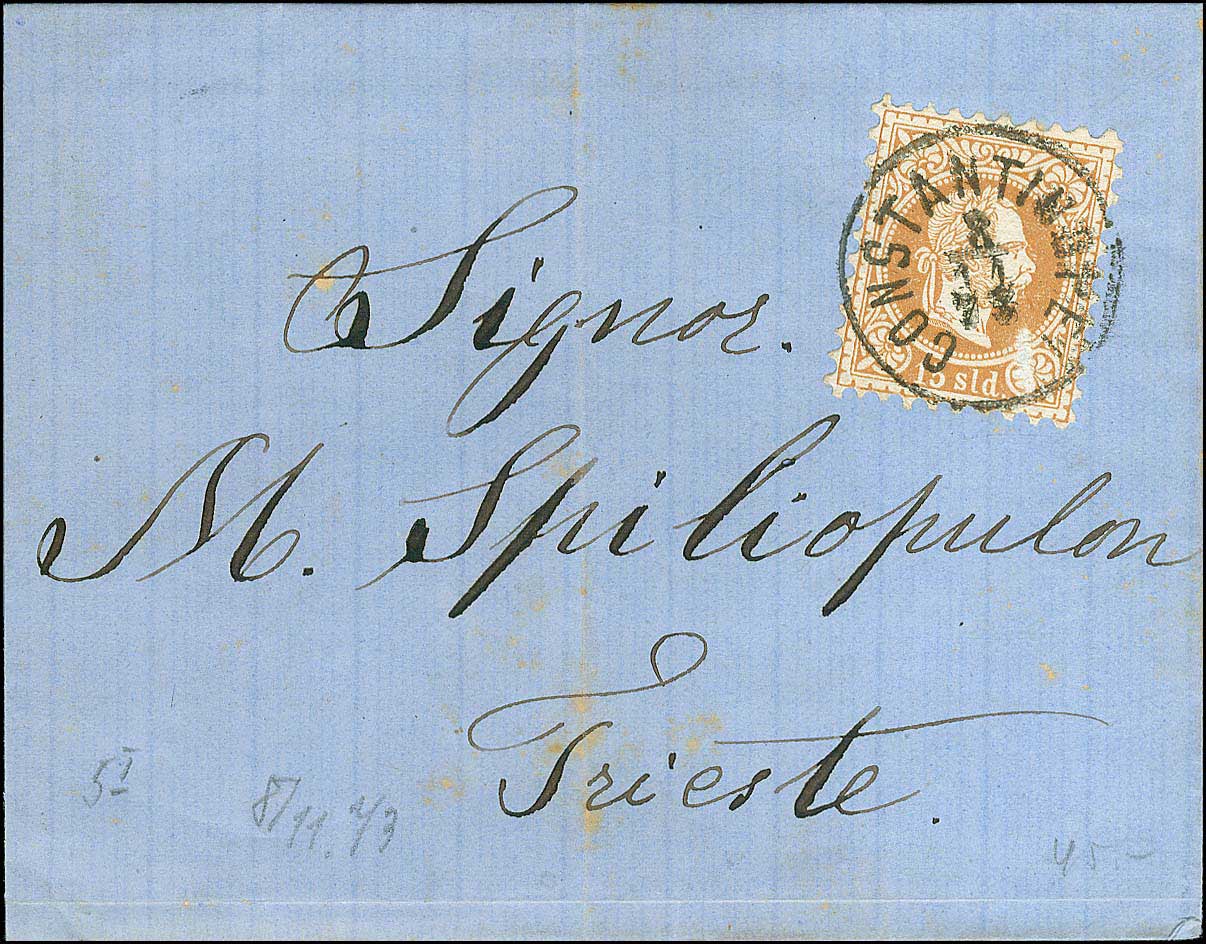 CONSTANTINOPEL
8
11
73
15 sld
Signor.
M. Spiliopulon
Trieste.
5 I
8/11. 73
45.-